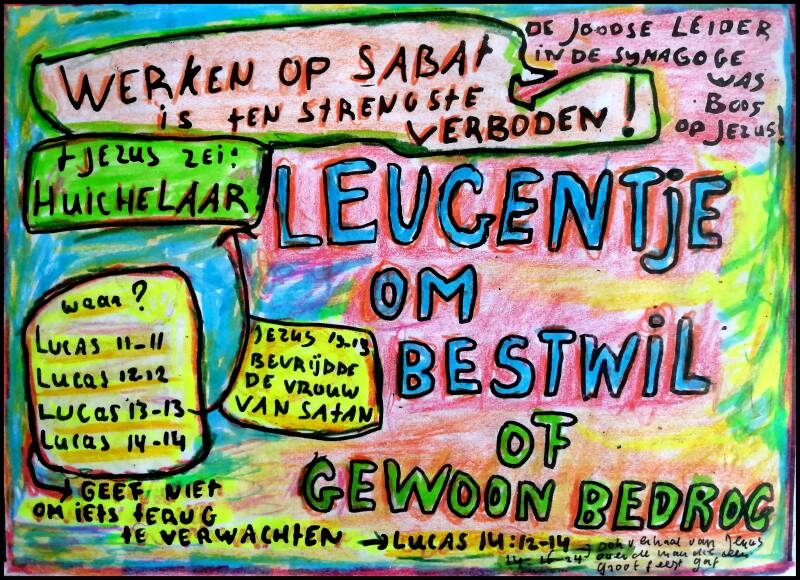 WERKEN OP SABAT
is tEN STRENGSTE
VERBODEN!
DE JOODSE LEIDER
IN DE SYNAGOGE
WAS
BOOS
OP JEZUS!
+ JEZUS ZEI:
HUICHELAAR
LEUGENTjE
OM
BESTWiL
OF
GEWOON BEDROG
waar?
LUCAS 11-11
LUCAS 12 12
LUCAS 13-13
LUCAS 14-14
JEZUS 13-13
BEVRIJDDE
DE VROUW
VAN SATAN
→ GEEF NIET
OM iETS tERUG
tE VERWACHTEN → LUCAS 14:12-14
→ ook verhaal van Jezus
14-16-24 over de man die een
groot feest gaf